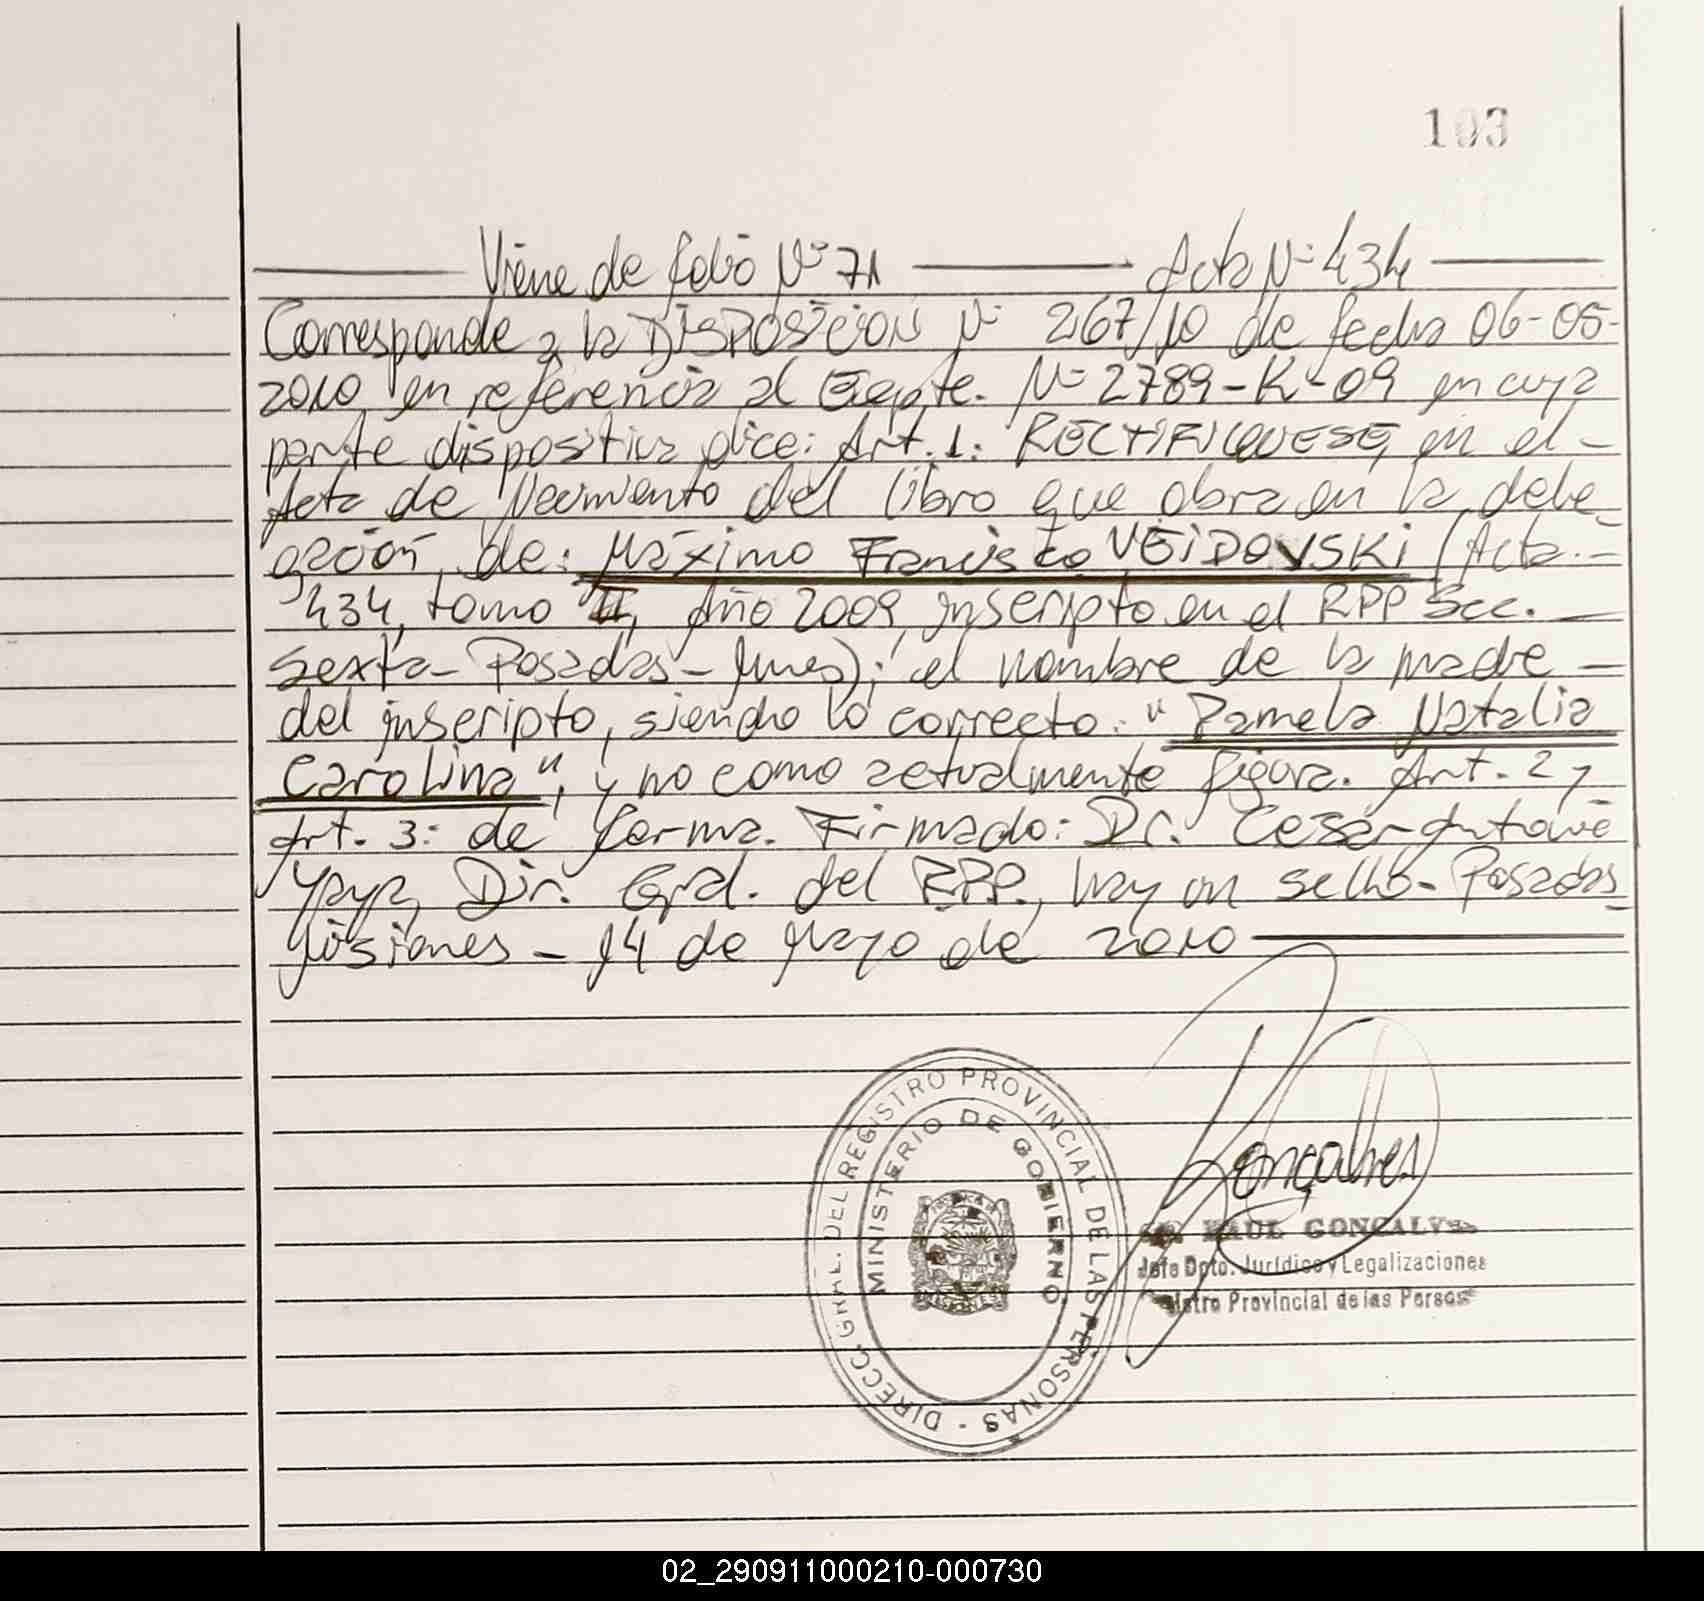 103
Viene de folio Nº 71 Acta Nº 434
Corresponde a la DISPOSICION Nº 267/10 de fecha 06-05-
2010, en referencia al Expte. Nº 2789-K-09 en cuya
parte dispositiva dice: Art. 1: RECTIFIQUESE, en el -
Acta de Nacimiento del libro que obra en la dele
gación, de: Máximo Francisco VEIDOVSKI (Acta. -
434, tomo II, Año 2009, inscripto en el RPP Sec. -
Sexta - Posadas - Mnes); el nombre de la madre -
del inscripto, siendo lo correcto: "Pamela Natalia
Carolina", y no como actualmente figura. Art. 2 y
Art. 3: de forma. Firmado: Dr. Cesar Antonie
Yaya, Dir. Gral. del RPP., hay un sello - Posadas
Misiones - 14 de Mayo de 2010
DIRECC. GRAL. DEL REGISTRO PROVINCIAL DE LAS PERSONAS -
MINISTERIO DE GOBIERNO
MISIONES
Gonçalves
RAUL GONCALVES
Jefe Dpto. Jurídico y Legalizaciones
Registro Provincial de las Personas
02_290911000210-000730